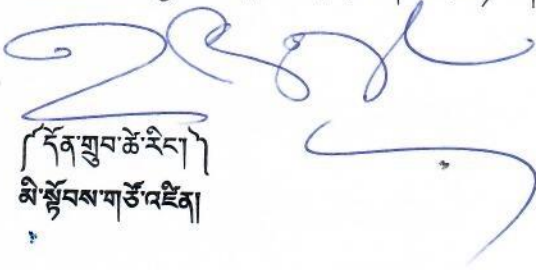 ༼དོན་གྲུབ་ཚེ་རིང།༽
མི་སྟོབས་གཙོ་འཛིན།